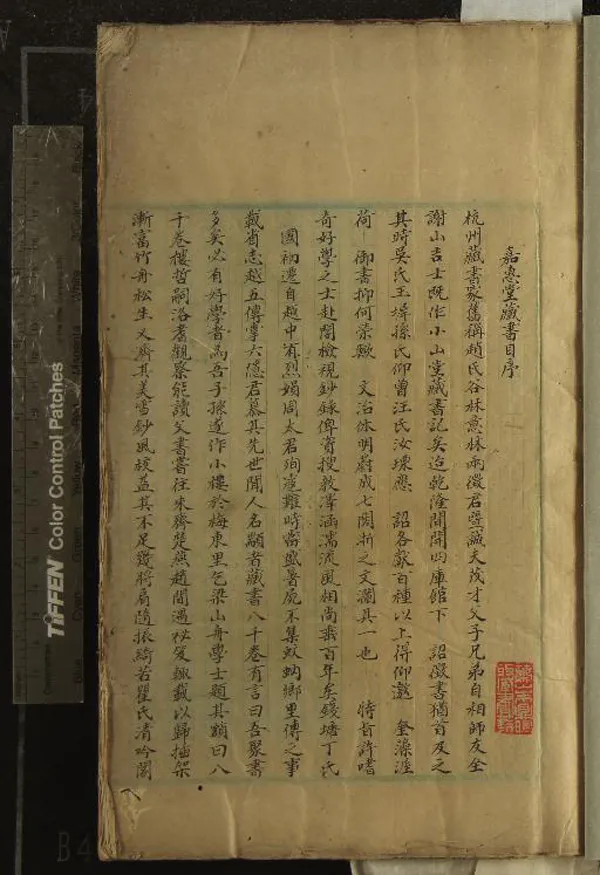 嘉惠堂藏書目序
杭州藏書家舊稱趙氏谷林意林兩徵君暨誠夫茂才父子兄弟自相師友全
謝山吉士既作小山堂藏書記矣迨乾隆間開四庫館下 詔徵書猶首及之
其時吳氏玉墀孫氏仰曾汪氏汝瑮應 詔各獻百種以上得仰邀 奎藻渥
荷 御書抑何榮歟 文治休明蔚成七閣浙之文瀾其一也 特旨許嗜
奇好學之士赴閣檢視鈔錄俾資搜教澤涵濡流風相尚垂百年矣錢塘丁氏
國初遷自越中有烈婦周太君殉瘧難時當盛暑屍不集蚊蚋鄉里傳之事
載省志越五傳掌六隱君慕其先世聞人名顗者藏書八千卷有言曰吾聚書
多矣必有好學者為吾子孫遂作小樓於梅東里乞梁山舟學士題其額曰八
千卷樓哲嗣洛耆觀察能讀父書嘗往來齊楚燕趙間遇祕笈輒載以歸插架
漸富竹舟松生又濟其美雪鈔風校益其不足幾將肩隨振綺若瞿氏清吟閣
TIFFEN Color Control Patches
Cyan
Green
Yellow
Red
Magenta
B4